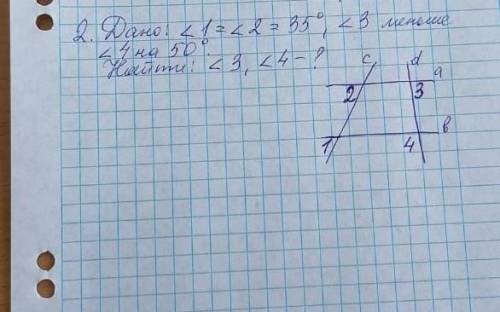 2. Дано: ∠1 = ∠2 = 35°, ∠3 меньше
∠4 на 50°.
Найти: ∠3, ∠4 - ?
c d
a
2 3
в
1 4